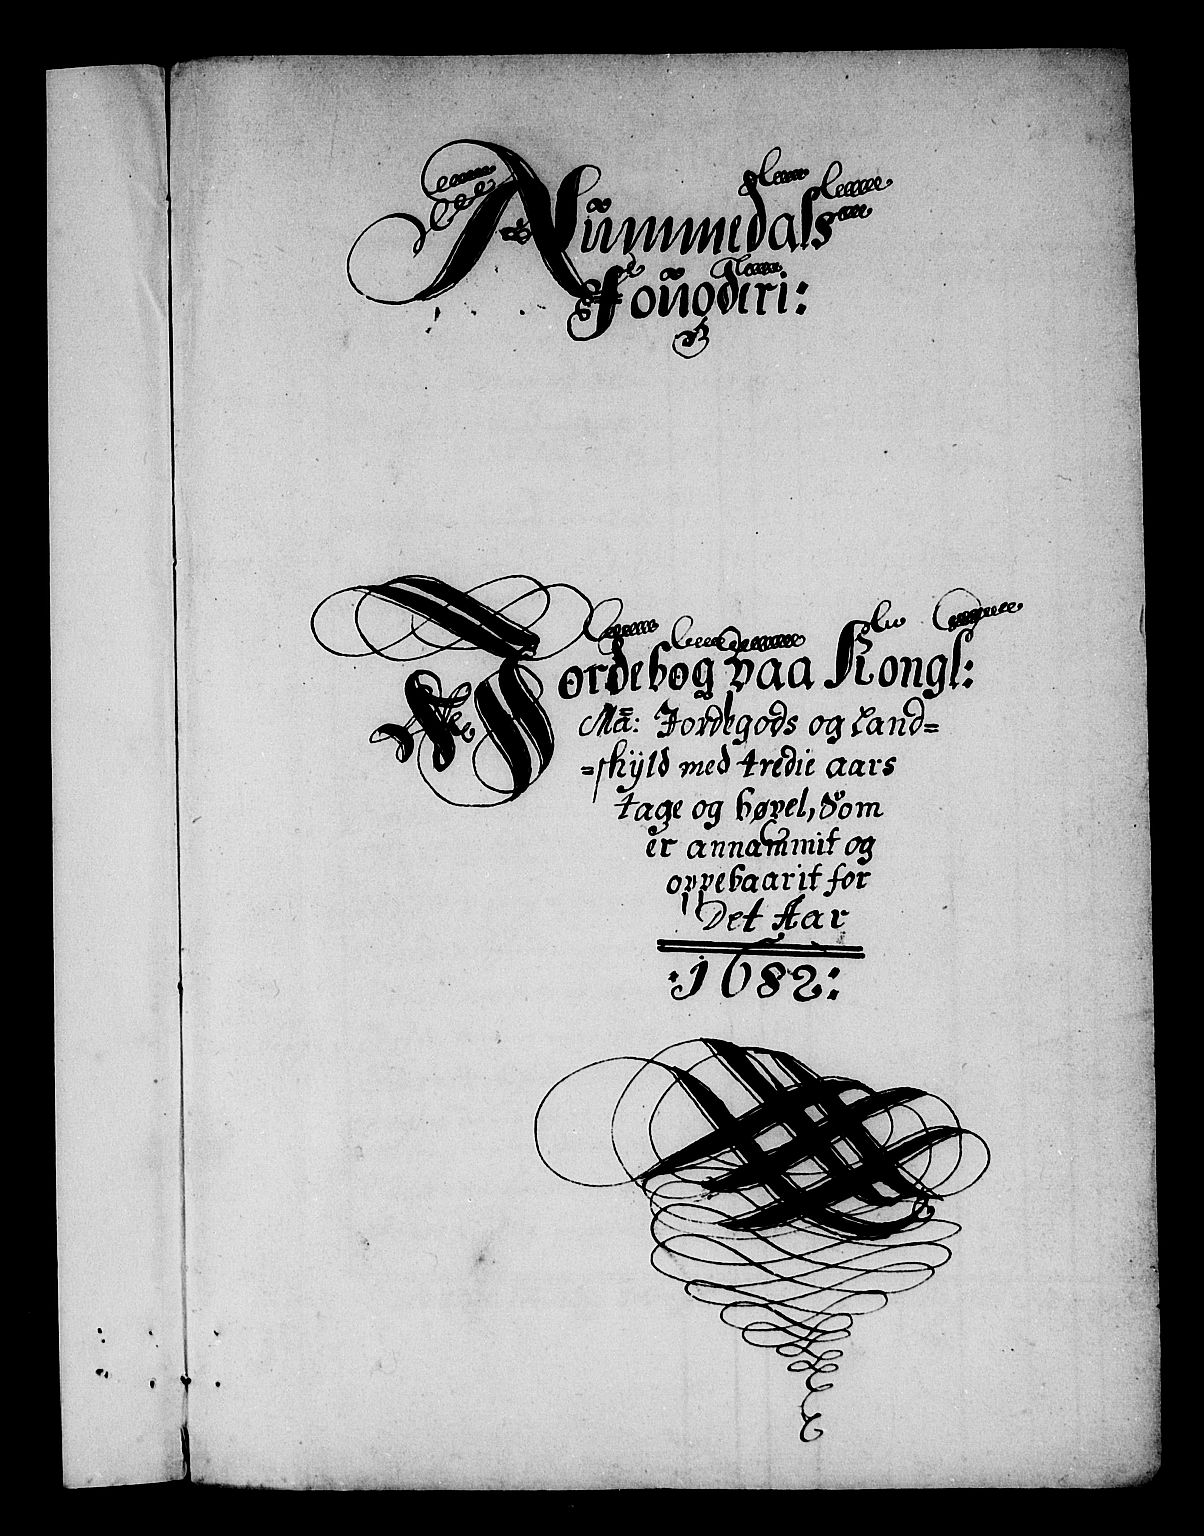 Nummedals
Fougderi:
Jordebog paa Kongl:
Ma: Jordegods og Land=
=skyld med tredie aars
tage og bøxel, Som
er annammit og
oppebaarit for
Det Aar
:1682: